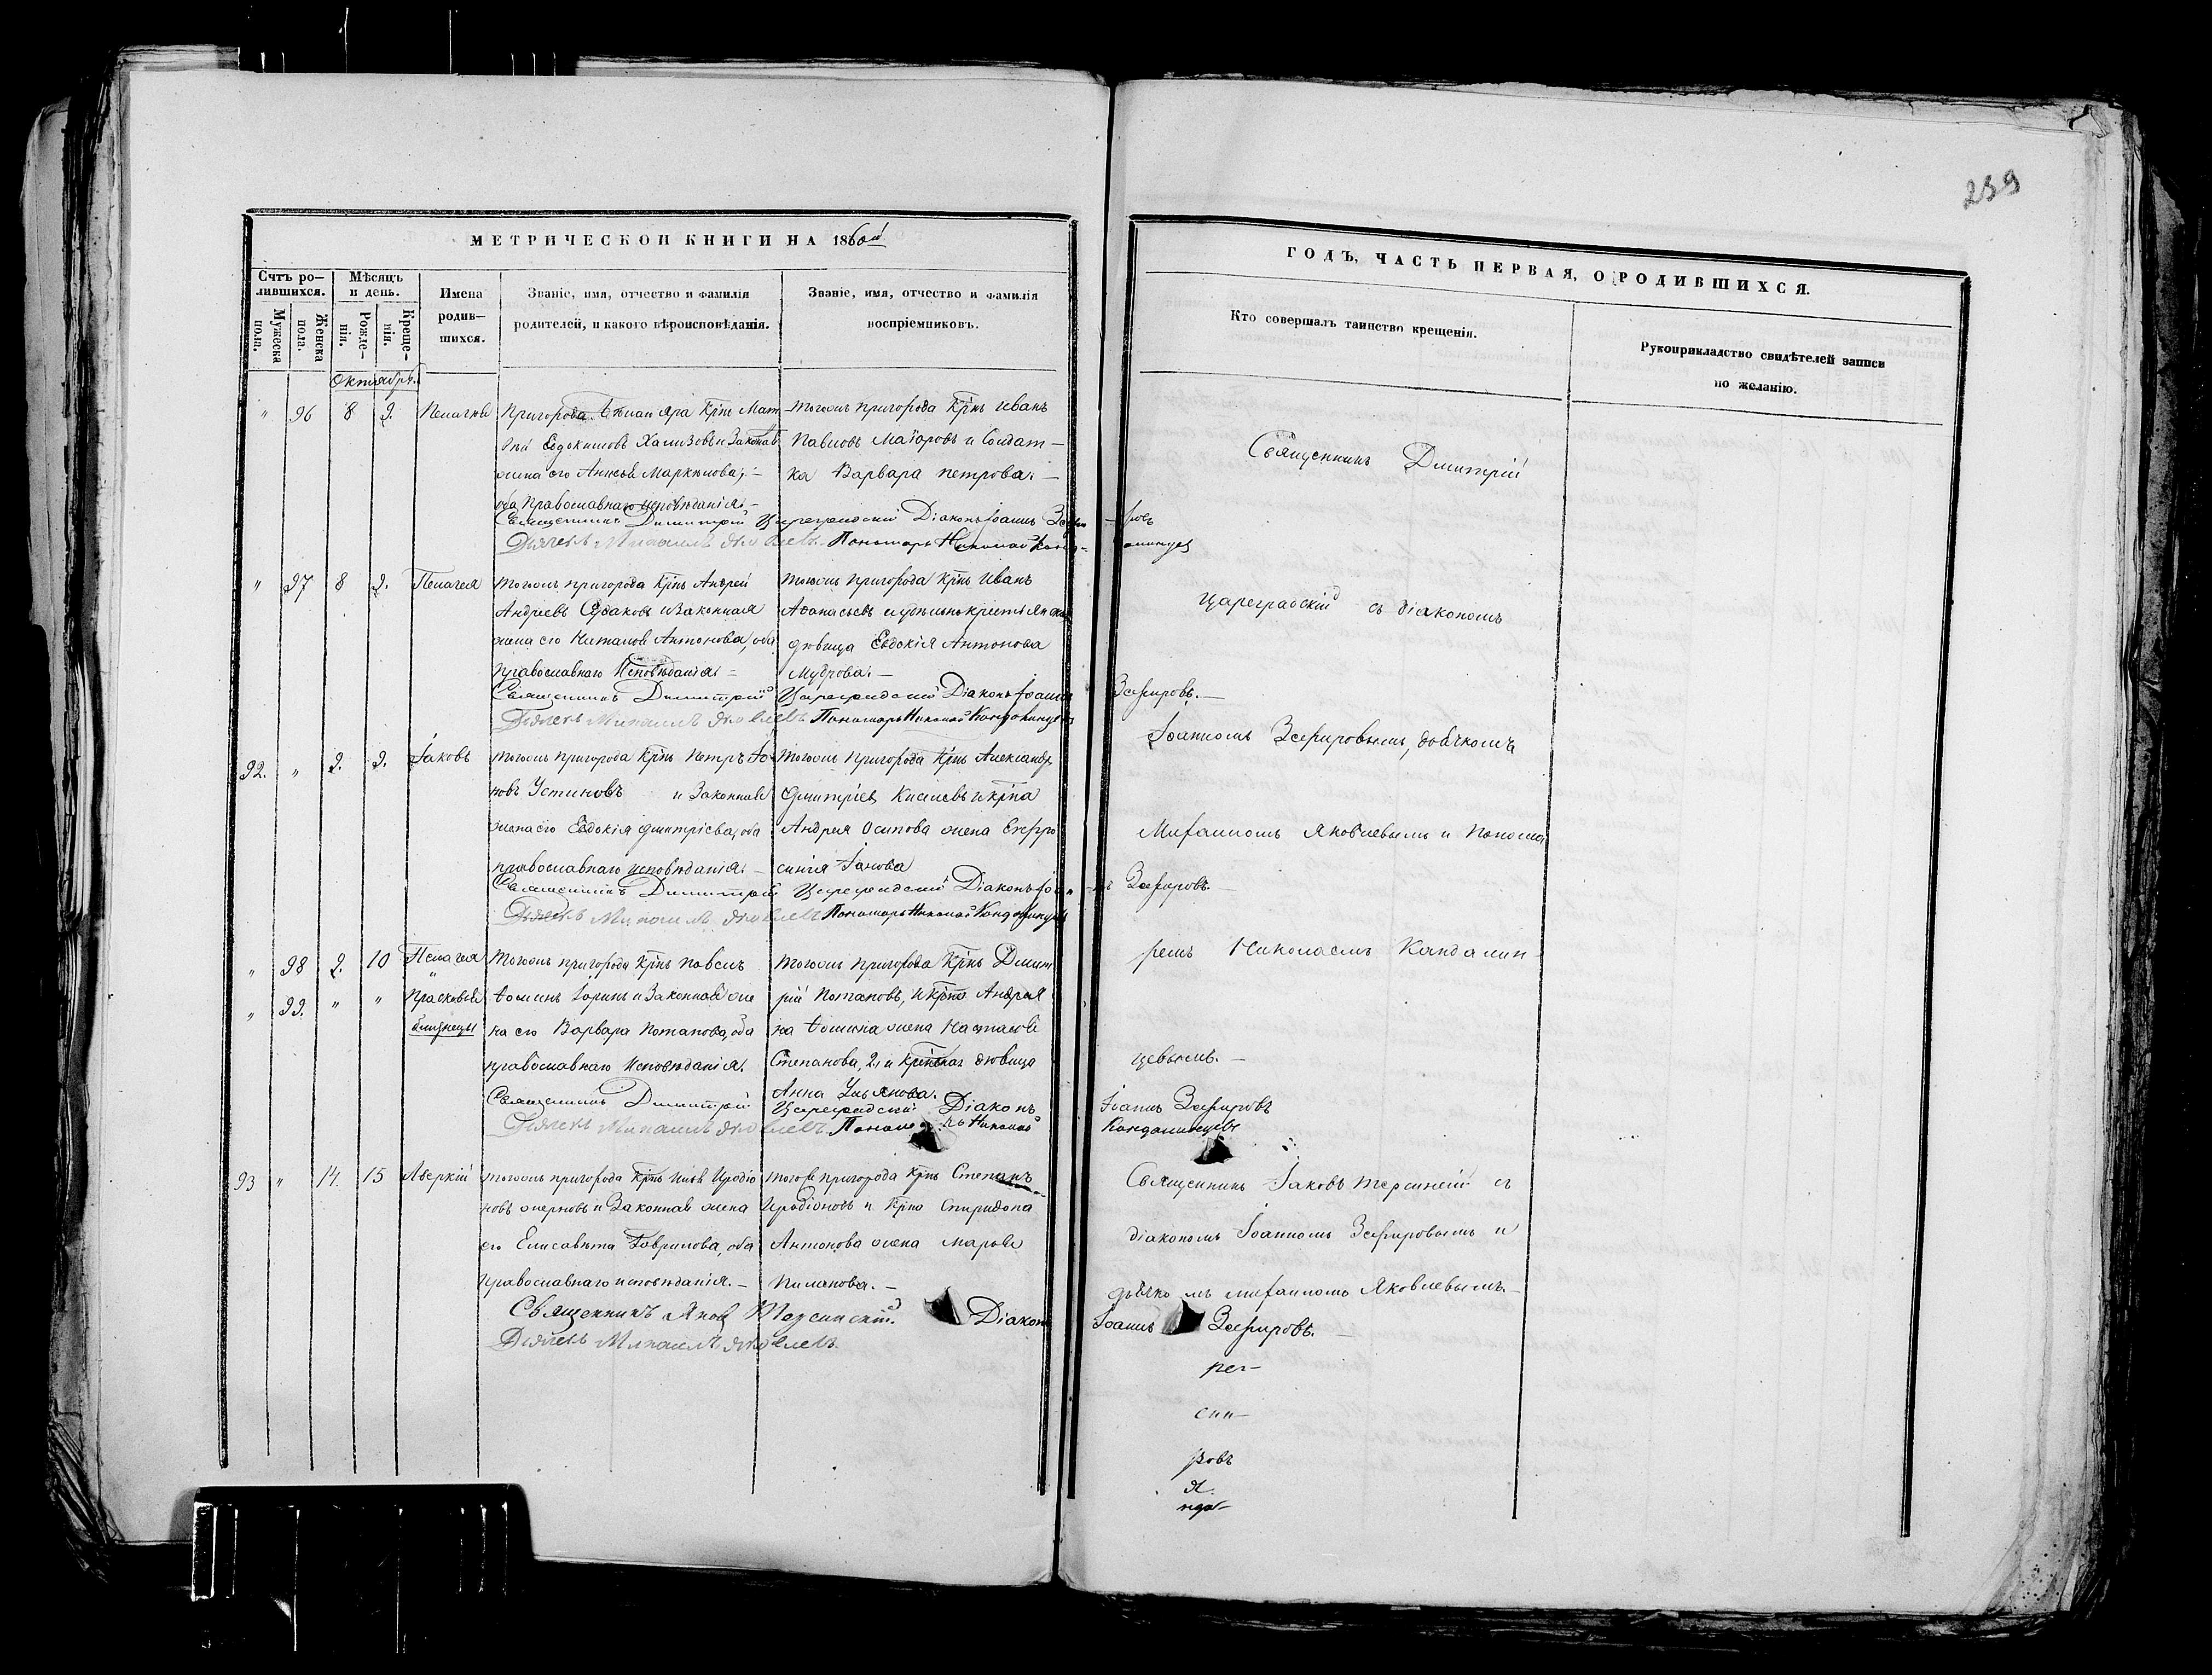 239
МЕТРИЧЕСКОЙ КНИГИ НА 1860й
ГОДЪ, ЧАСТЬ ПЕРВАЯ, О РОДИВШИХСЯ.
Счтъ ро-
дившихся.
Мужеска пола.
Женска пола.
Мѣсяцъ
и день.
Рожде-
нія.
Креще-
нія.
Имена
родив-
шихся.
Званіе, имя, отчество и фамилія
родителей, и какого вѣроисповѣданія.
Званіе, имя, отчество и фамилія
воспріемниковъ.
Кто совершалъ таинство крещенія.
Рукоприкладство свидѣтелей записи
по желанію.
Октябрь
" 96 8 9. Пелагея
Пригорода Яра Крнъ Мат-
вѣй Евдокимовъ и Законная
жена его Анисья Маркелова,
оба Православнаго исповѣданія.
тогожъ пригорода Крнъ Иванъ
Павловъ Маіоровъ и Солдат-
ка Варвара Петрова.
Священникъ Димитрій Цареградскій Діаконъ Іоаннъ Зефировъ
Дьячекъ Михаилъ Яковлевъ Пономарь Николай Кандалинцевъ
" 97 8 9. Пелагея
тогожъ пригорода Крнъ Андрей
Андреевъ и Законная
жена его Наталья Антонова, оба
православнаго Исповѣданія.
тогожъ пригорода Крнъ Иванъ
Аѳанасьевъ и
дѣвица Евдокія Антонова
Мудрова.
Священникъ Димитрій Цареградскій Діаконъ Іоаннъ Зефировъ.
Дьячекъ Михаилъ Яковлевъ Пономарь Николай Кандалинцевъ
92. " 9. 9. Іаковъ
тогожъ пригорода Крнъ Петръ
Устиновъ и Законная
жена его Евдокія Дмитріева, оба
православнаго исповѣданія.
тогожъ Пригорода Крнъ Александръ
Дмитріевъ Киселевъ и крна
Андрея Осипова жена Евфро
синія
Священникъ Димитрій Цареградскій Діаконъ Іоаннъ Зефировъ.
Дьячекъ Михаилъ Яковлевъ Пономарь Николай Кандалинцевъ
" 98 9. 10 Пелагея
" 99. " " Прасковья
близнецы
тогожъ пригорода Крнъ Павелъ
Ѳоминъ Зоринъ и Законная же
на его Варвара Потапова, оба
православнаго Исповѣданія.
тогожъ пригорода Крнъ Димит
рій Потаповъ, и Крна Андрея
на Ѳомина жена Настасья
Степанова, 2, и Крнская дѣвица
Анна Ульянова.
Священникъ Димитрій Цареградскій Діаконъ Іоаннъ Зефировъ
Дьячекъ Михаилъ Яковлевъ. Пономарь Николай Кандалинцевъ
93 " 14. 15 Аверкій
тогожъ пригорода Крнъ Иродіо
новъ и Законная жена
его Елисавета Гаврилова, оба
Православнаго исповѣданія.
тогоже пригорода Крнъ Степанъ
Иродіоновъ и Крна Спиридона
Антонова жена Марья
Священникъ Яковъ Терсинскій. Діаконъ Іоаннъ Зефировъ.
Дьячекъ Михаилъ Яковлевъ.
Священникъ Дмитрій
Цареградскій съ діакономъ
Іоанномъ Зефировымъ, дьячкомъ
Михаиломъ Яковлевымъ и Понома
ремъ Николаемъ Кандалин-
цевымъ.
Священникъ Іаковъ Терсинскій съ
діакономъ Іоанномъ Зефировымъ и
дьячкомъ Михаиломъ Яковлевымъ.